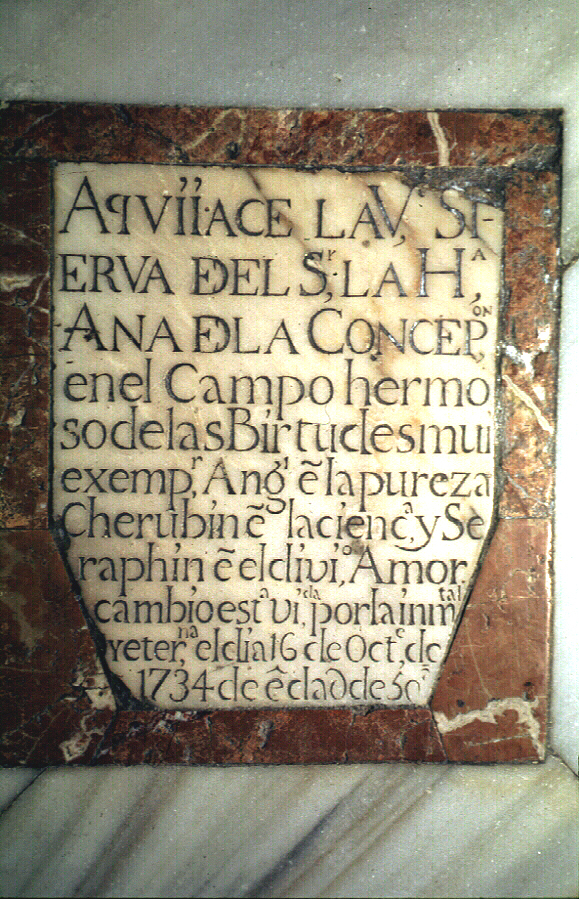 AqVÍÍ·ACE LA V,ᵉ SI-
ERVA DEL S,ʳ·LA Hᴬ,
ANA DLA CONCEP,ᴼᴺ
enel Campo hermo
so delas Birtudes mui
exemp,ʳ Angˡ ẽ la pureza
Cherubin ẽ la cienc,ᵃ y Se
raphin ẽ el divi,ᵒ Amor,
cambio estᵃ vi,ᵈᵃ por la inmᵗᵃˡ
yeter,ⁿᵃ el dia 16 de Octᵉ, de
1734 de ẽdad de 50ˢ